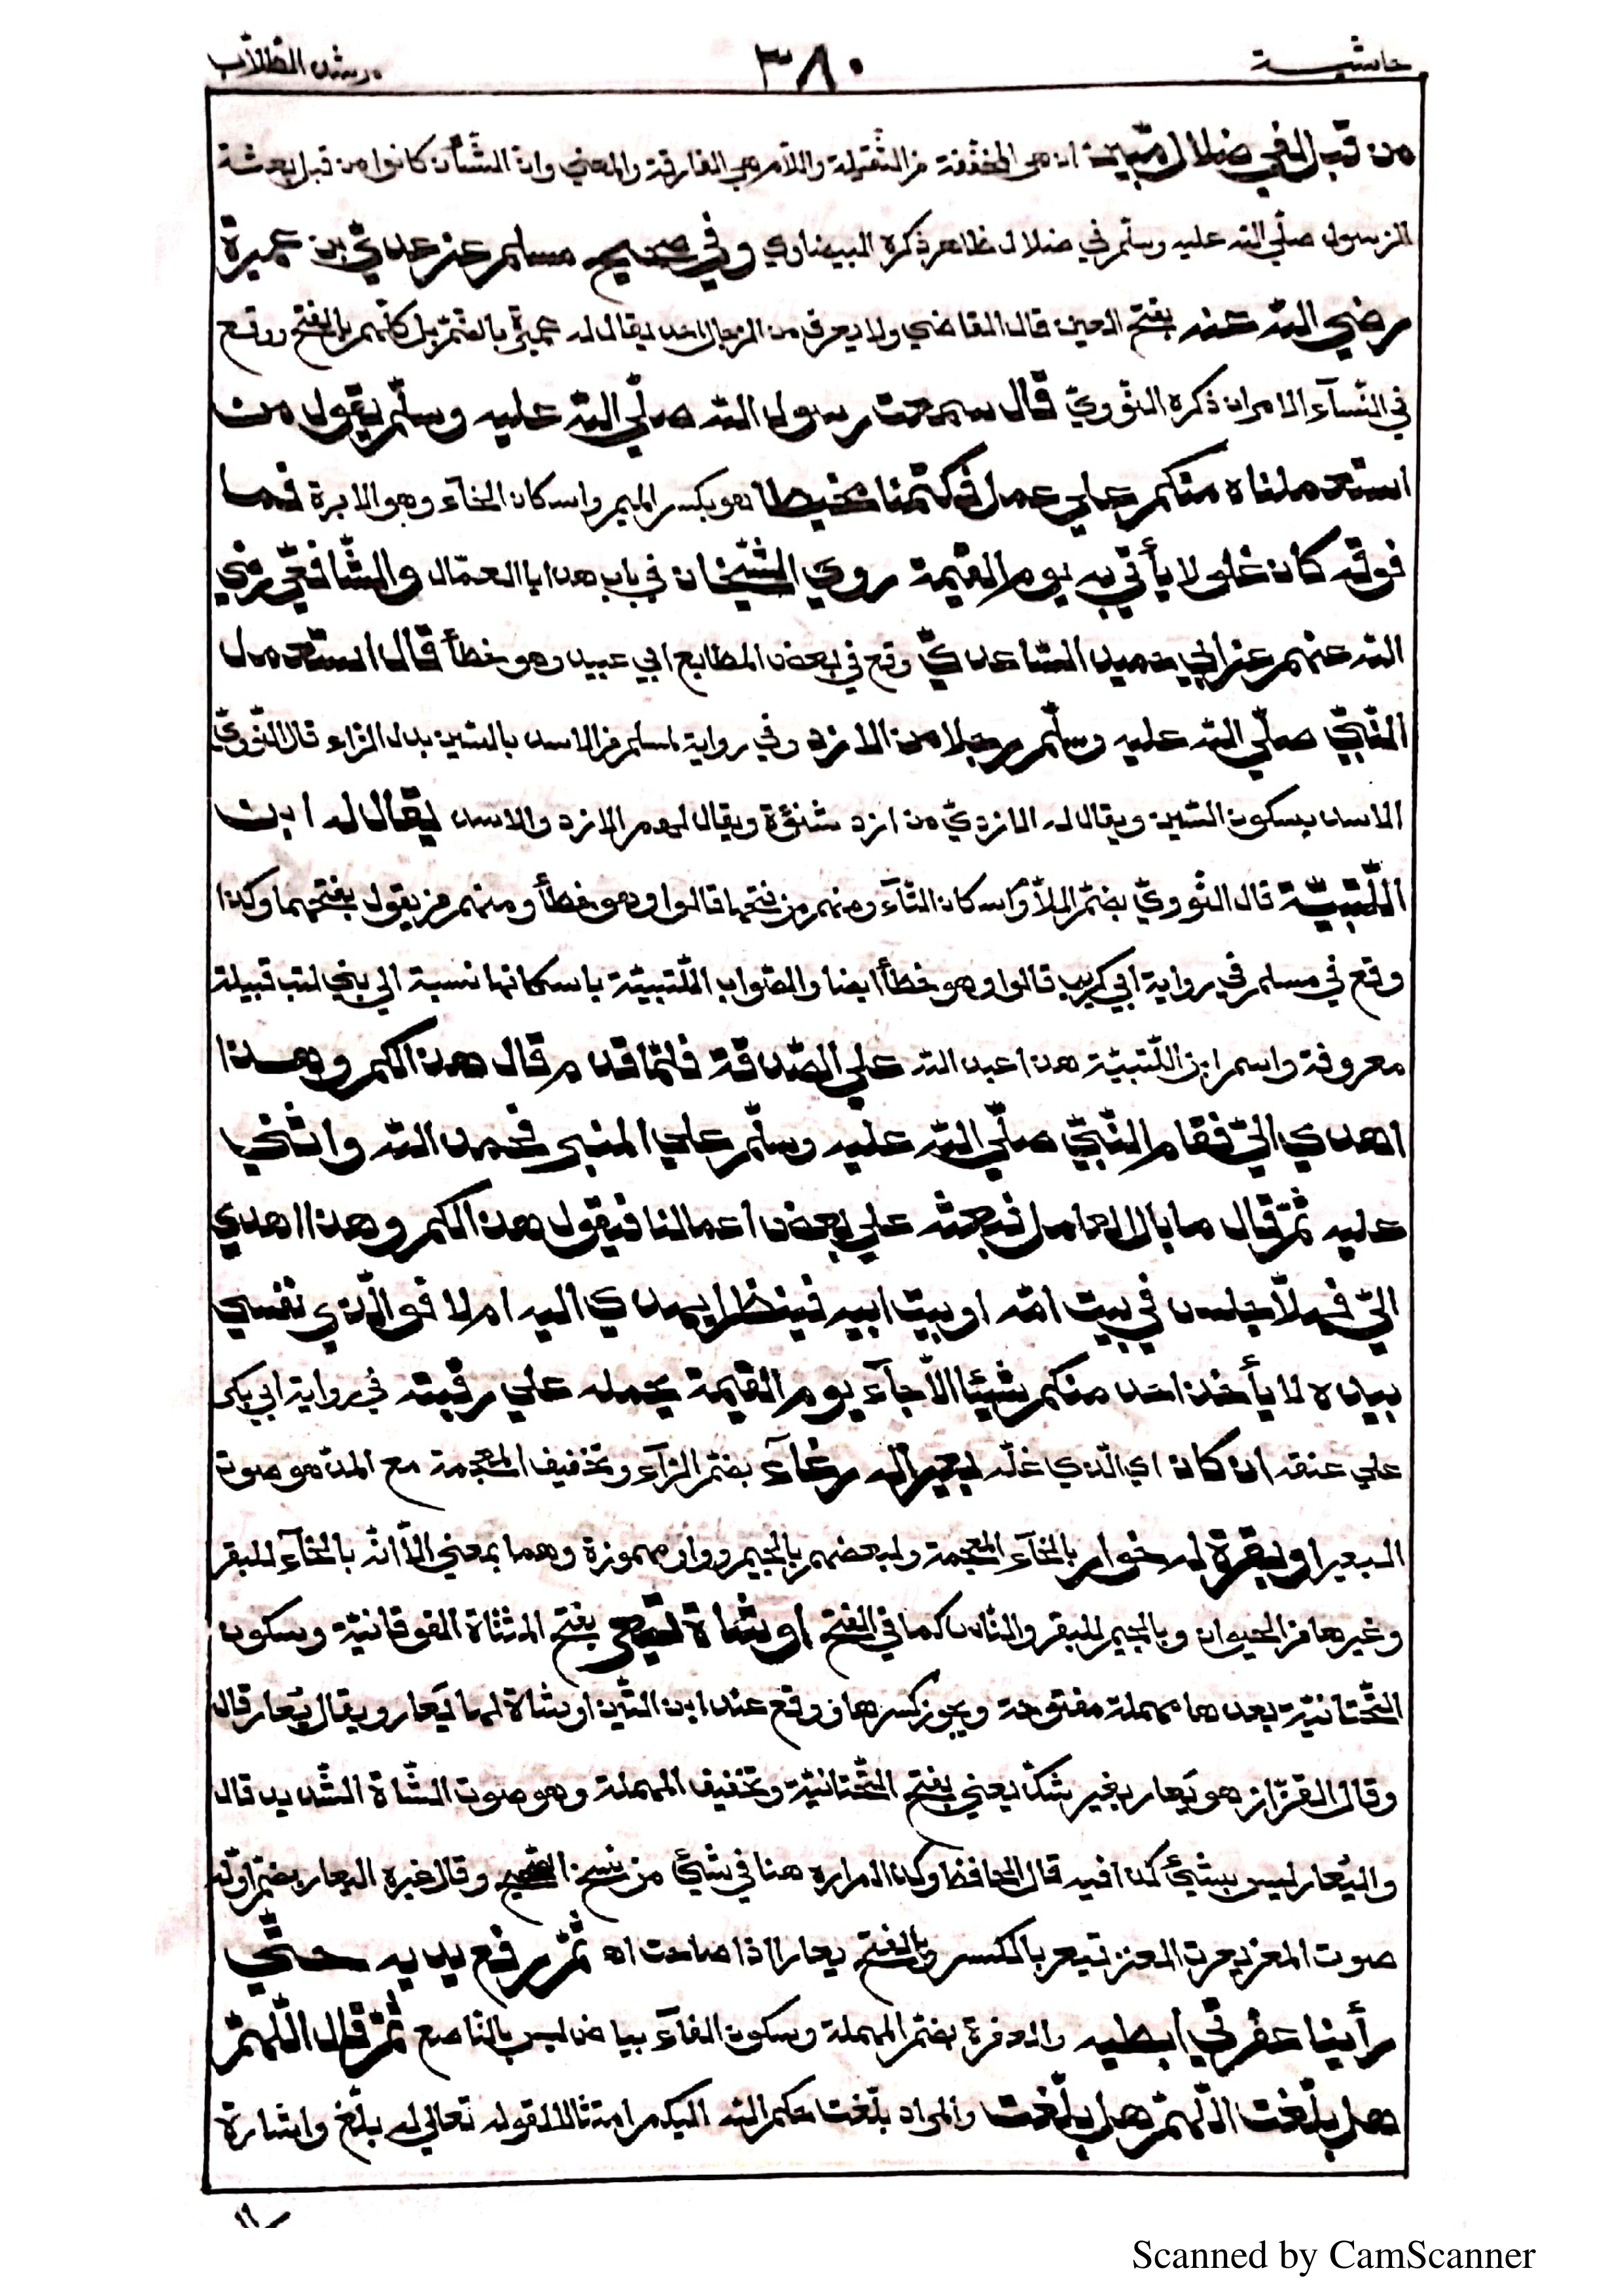 حاشيــة ٣٨٠ مرشد الطّلّاب
من قبل لفي ضلال مّبين ان هي المخفّفة من الثّقيلة واللّام هي الفارقة والمعني وان الشّأن كانوا من قبل بعثة
الرّسول صلّي اللّه عليه وسلّم في ضلال ظاهر ذكره البيضاوي وفي صحيح مسلم عن عديّ بن عميرة
رضي اللّه عنه بفتح العين قال القاضي ولا يعرف من الرّجال احد يقال له عميرة بالضّمّ بل كلّهم بالفتح ووقع
في النّسآء الامران ذكره النّوويّ قال سمعت رسول اللّه صلّي اللّه عليه وسلّم يقول من
استعملناه منكم علي عمل فكتمنا مخيطا هو بكسر الميم واسكان الخآء وهو الابرة فما
فوقه كان غلولا يأتي به يوم القيمة روي الشّيخان في باب هدايا العمّال والشّافعيّ رضي
اللّه عنهم عن ابي حميد السّاعديّ وقع في بعض المطابع ابي عبيد وهو خطأ قال استعمل
النّبيّ صلّي اللّه عليه وسلّم رجلا من الازد وفي رواية لمسلم من الاسد بالسّين بدل الزّاء قال النّوويّ
الاسد بسكون السّين ويقال له الازديّ من ازد شنؤة ويقال لهم الازد والاسد يقال له ابن
اللّتبيّة قال النّوويّ بضمّ اللّام واسكان التّآء ومنهم من فتحها قالوا وهو خطأ ومنهم من يقول بفتحهما وكذا
وقع في مسلم في رواية ابي كريب قالوا وهو خطأ ايضا والصّواب اللّتبيّة باسكانها نسبة الي بني لتب قبيلة
معروفة واسم ابن اللّتبيّة هذا عبد اللّه علي الصّدقة فلمّا قدم قال هذا لكم وهــذا
اهدي اليّ فقام النّبيّ صلّي اللّه عليه وسلّم علي المنبر فحمد اللّه واثني
عليه ثمّ قال ما بال العامل نبعثه علي بعض اعمالنا فيقول هذا لكم وهذا اهدي
اليّ فهلّا جلس في بيت امّه او بيت ابيه فينظر ايهدي اليه ام لا فوالّذي نفسي
بيده لا يأخذ احد منكم شيئا الّا جآء يوم القيمة يحمله علي رقبته في رواية ابي بكر
علي عنقه ان كان اي الّذي غلّه بعيرا له رغآء بضمّ الرّآء وتخفيف المعجمة مع المدّ هو صوت
البعير او بقرة له خوار بالخآء المعجمة ولبعضهم بالجيم وواو مهموزة وهما بمعني الّا انّه بالخآء للبقر
وغيرها من الحيوان وبالجيم للبقر والنّاس كما في الفتح او شاة تيعر بفتح المثنّاة الفوقانيّة وسكون
التّحتانيّة بعدها مهملة مفتوحة ويجوز كسرها ووقع عند ابن التّين او شاة لها يعار ويقال يعار قال
وقال القزّاز هو يعار بغير شكّ يعني بفتح التّحتانيّة وتخفيف المهملة وهو صوت الشّاة الشّديد قال
واليعار ليس بشيئ كذا فيه قال الحافظ وكذا لم اره هنا في شيئ من نسخ الصّحيح وقال غيره اليعار بضمّ اوّله
صوت المعز يعرت المعنز تيعر بالكسر وبالفتح يعارا اذا صاحت اه ثمّ رفع يديه حــتّي
رأينا عفرتي ابطيه والعفرة بضمّ المهملة وسكون الفآء بياض ليس بالنّاصع ثمّ قال اللّهمّ
هل بلّغت اللّهمّ هل بلّغت والمراد بلّغت حكم اللّه اليكم امتثالا لقوله تعالي له بلّغ واشارة
Scanned by CamScanner